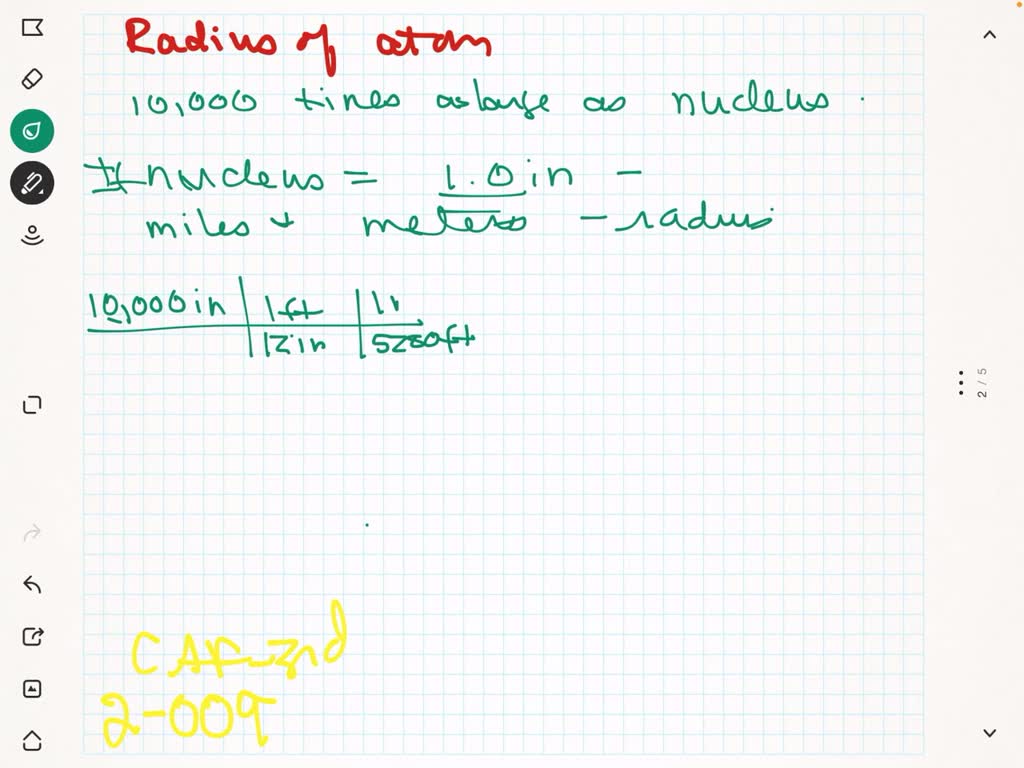 Radius of atom
10,000 times as large as nucleus.
If nucleus = 1.0 in -
miles + meters - radius
10,000 in | 1 ft | 1
12 in | 5280 ft
2 / 5
2-009